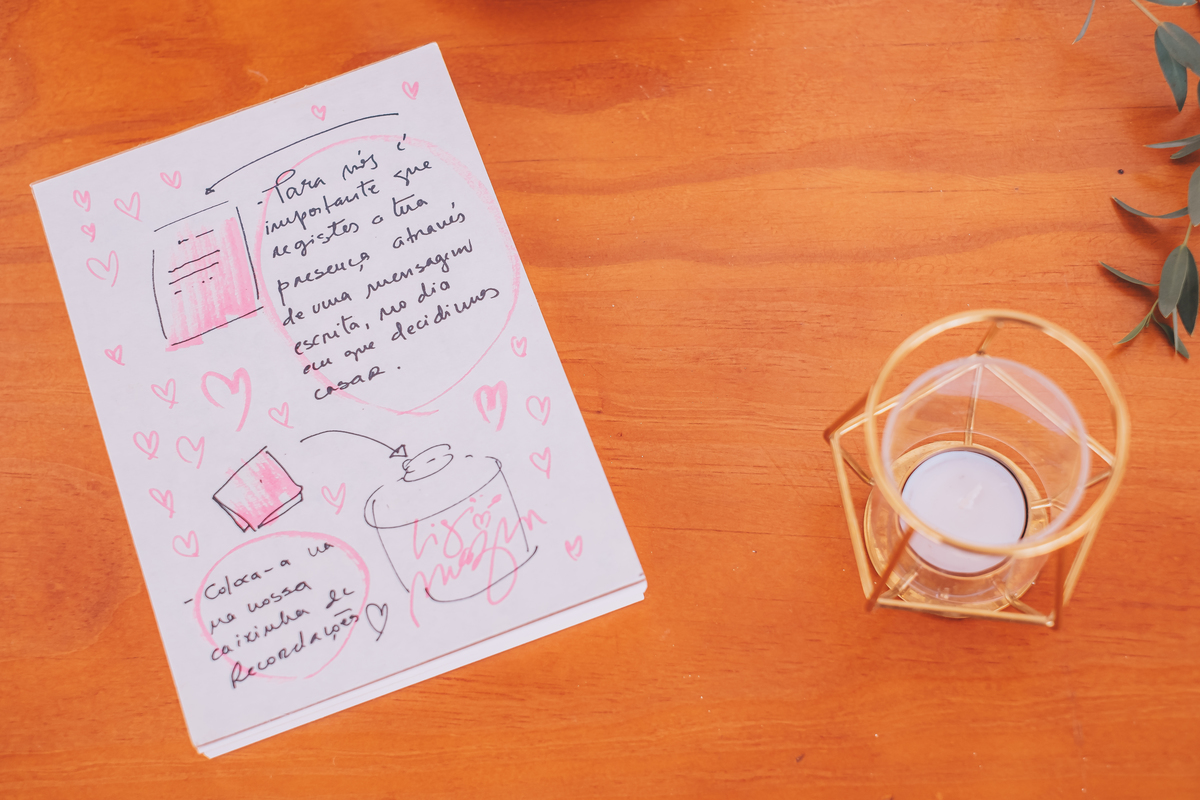 - Para nós é
importante que
registes a tua
presença através
de uma mensagem
escrita, no dia
em que decidimos
casar.
- Coloca-a na
na nossa
caixinha de
Recordações